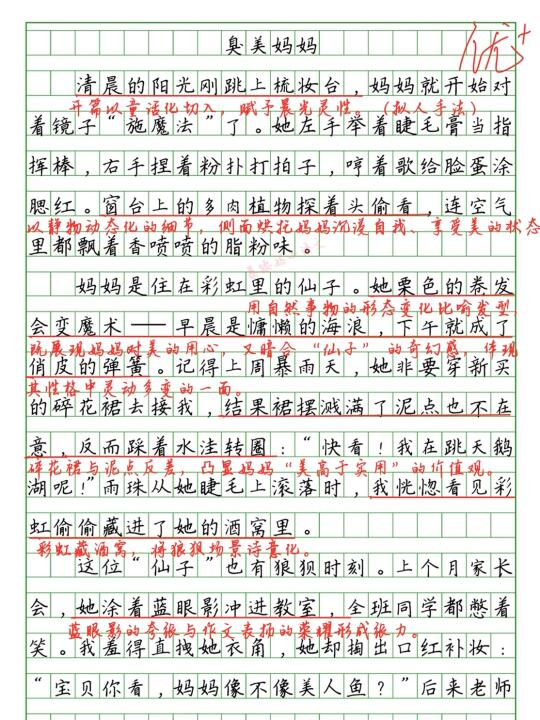 臭美妈妈
优+
清晨的阳光刚跳上梳妆台，妈妈就开始对
开篇以童话化切入，赋予晨光灵性。（拟人手法）
着镜子“施魔法”了。她左手举着睫毛膏当指
挥棒，右手捏着粉扑打拍子，哼着歌给脸蛋涂
腮红。窗台上的多肉植物探着头偷看，连空气
以静物动态化的细节，侧面烘托妈妈沉浸自我、享受美的状态
里都飘着香喷喷的脂粉味。
妈妈是住在彩虹里的仙子。她栗色的卷发
用自然事物的形态变化比喻发型，
会变魔术——早晨是慵懒的海浪，下午就成了
既展现妈妈对美的用心，又暗合“仙子”的奇幻感，体现
俏皮的弹簧。记得上周暴雨天，她非要穿新买
其性格中灵动多变的一面。
的碎花裙去接我，结果裙摆溅满了泥点也不在
意，反而踩着水洼转圈：“快看！我在跳天鹅
碎花裙与泥点反差，凸显妈妈“美高于实用”的价值观。
湖呢！”雨珠从她睫毛上滚落时，我恍惚看见彩
虹偷偷藏进了她的酒窝里。
彩虹藏酒窝，将狼狈场景诗意化。
这位“仙子”也有狼狈时刻。上个月家长
会，她涂着蓝眼影冲进教室，全班同学都憋着
蓝眼影的夸张与作文表扬的荣耀形成张力。
笑。我羞得直拽她衣角，她却掏出口红补妆：
“宝贝你看，妈妈像不像美人鱼？”后来老师